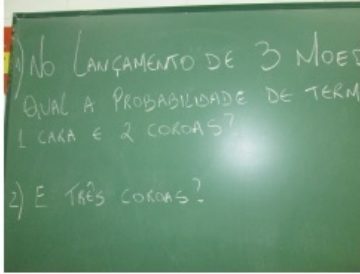 1) NO LANÇAMENTO DE 3 MOED
QUAL A PROBABILIDADE DE TERM
1 CARA E 2 COROAS?
2) E TRÊS COROAS?